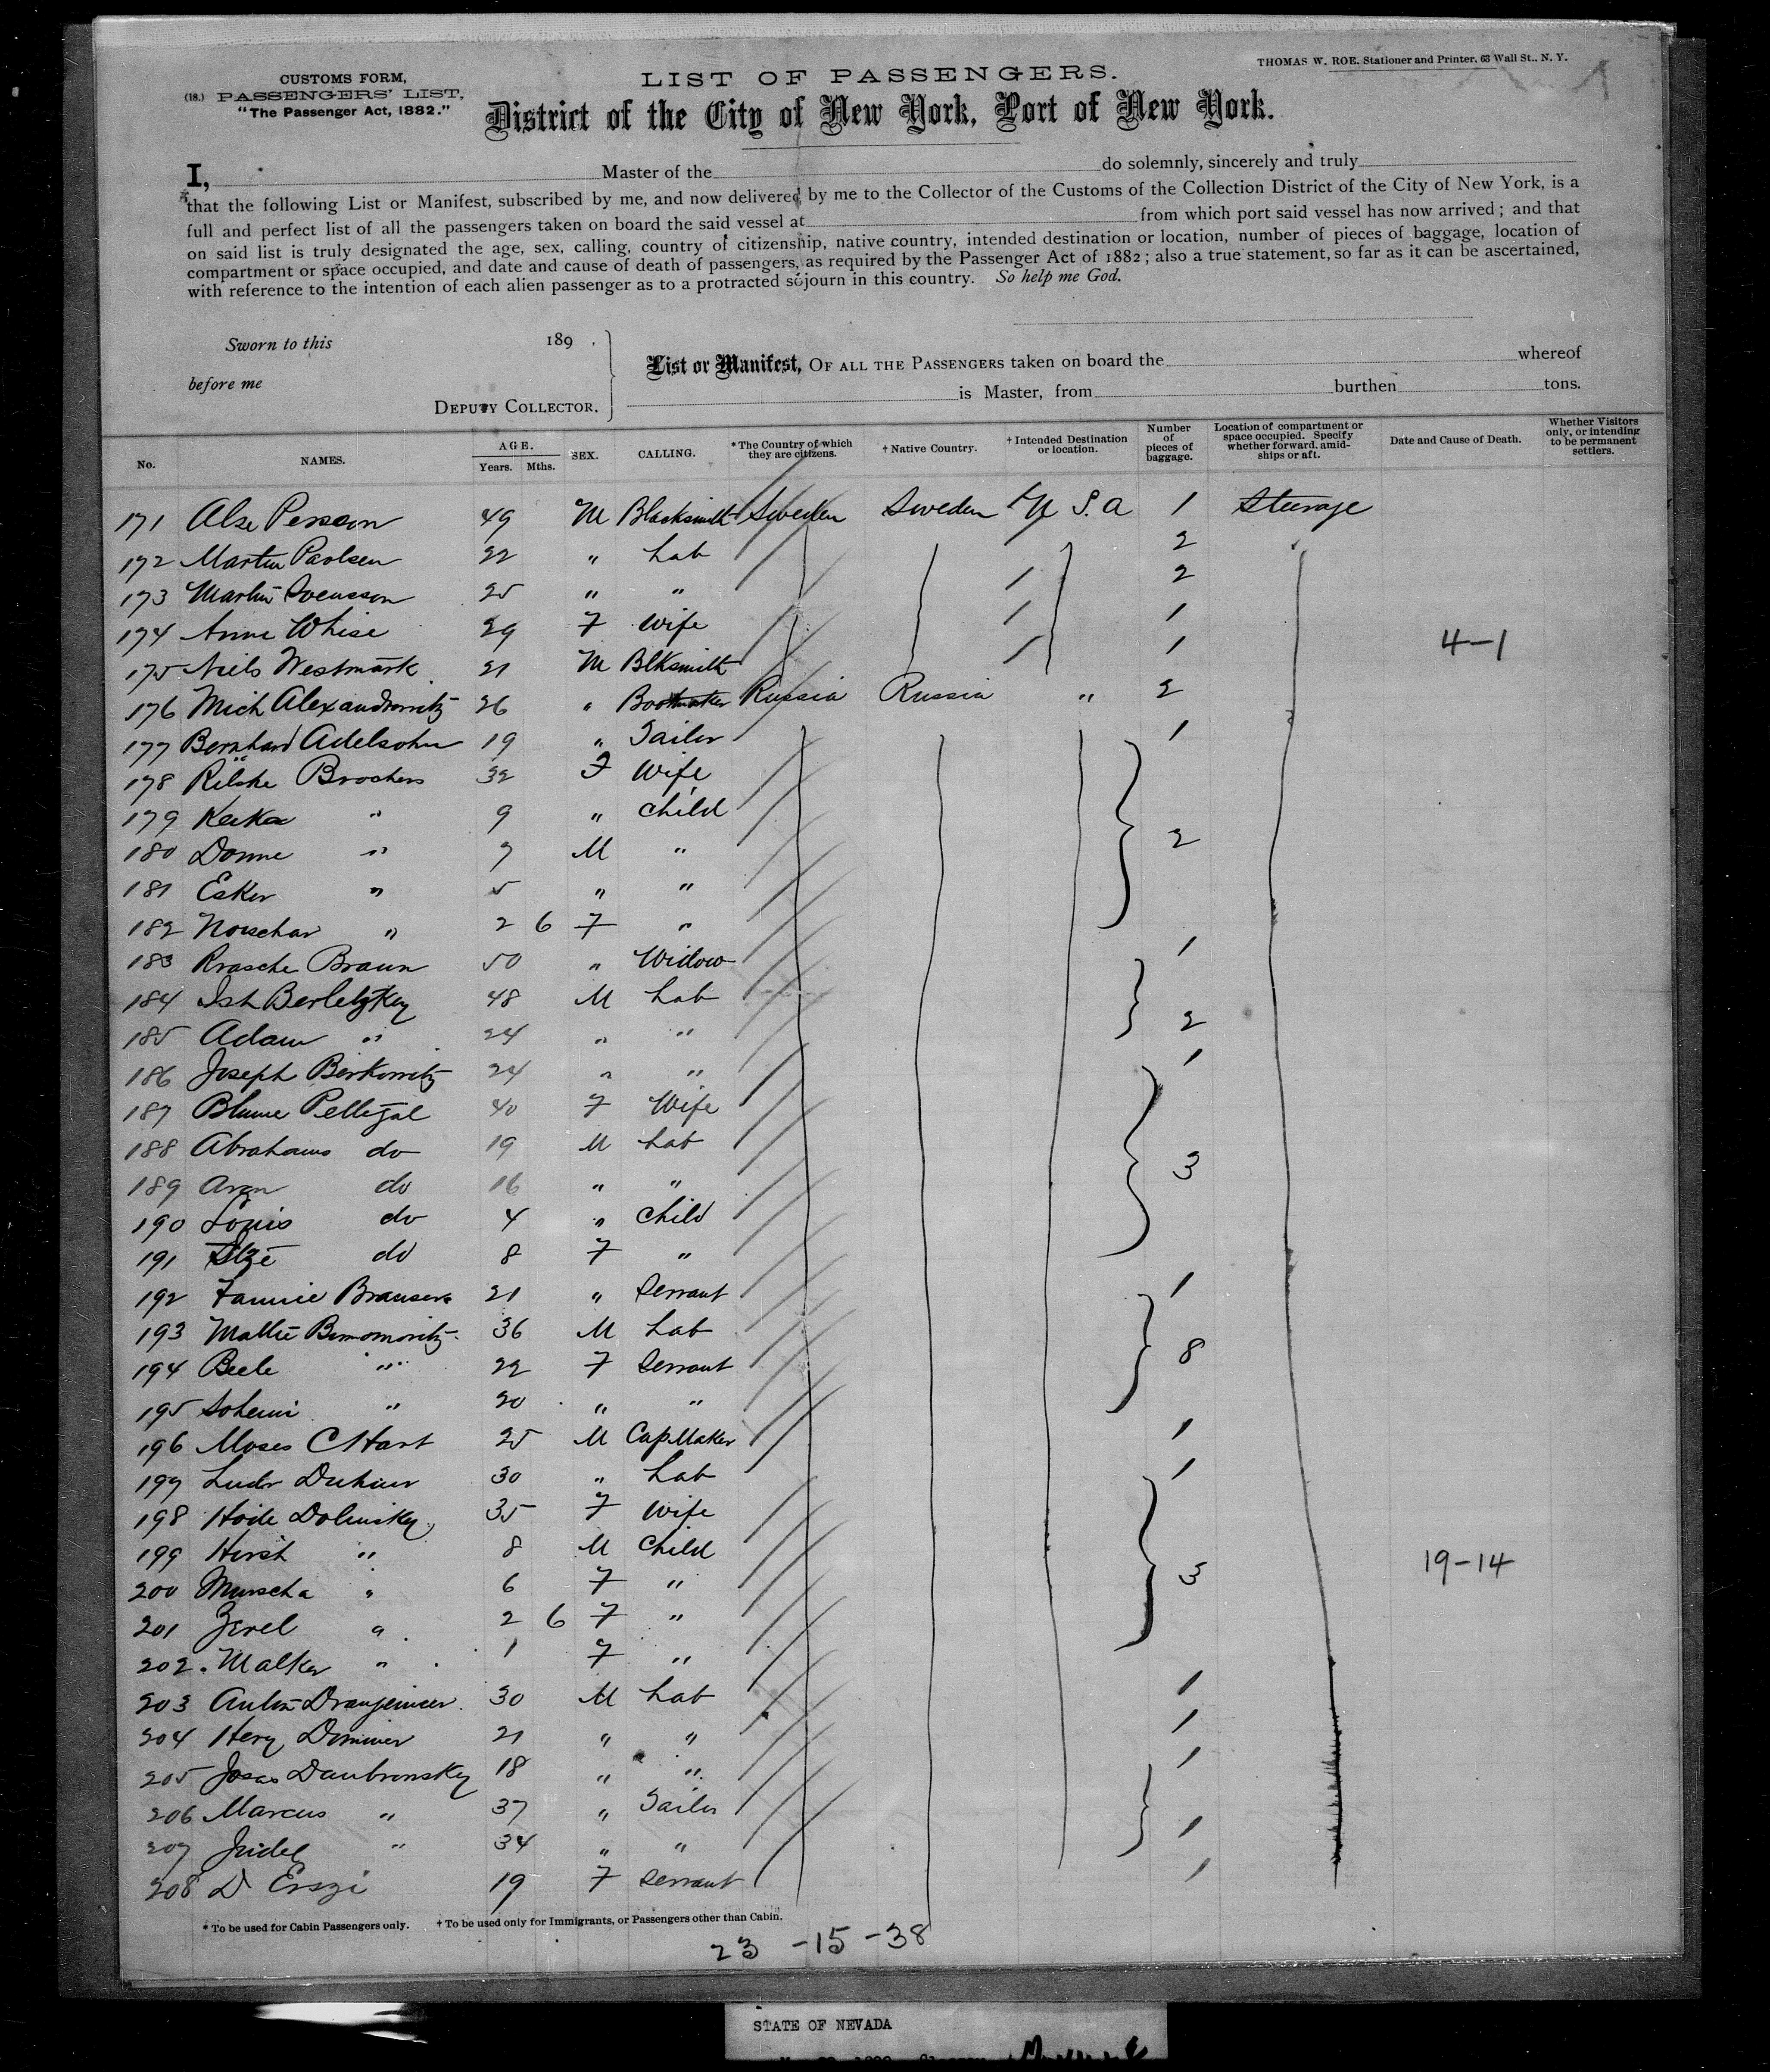 CUSTOMS FORM,
(18.) PASSENGERS' LIST,
"The Passenger Act, 1882."
LIST OF PASSENGERS.
THOMAS W. ROE, Stationer and Printer, 63 Wall St., N. Y.
District of the City of New York, Port of New York.
I, Master of the do solemnly, sincerely and truly
that the following List or Manifest, subscribed by me, and now delivered by me to the Collector of the Customs of the Collection District of the City of New York, is a
full and perfect list of all the passengers taken on board the said vessel at from which port said vessel has now arrived; and that
on said list is truly designated the age, sex, calling, country of citizenship, native country, intended destination or location, number of pieces of baggage, location of
compartment or space occupied, and date and cause of death of passengers, as required by the Passenger Act of 1882; also a true statement, so far as it can be ascertained,
with reference to the intention of each alien passenger as to a protracted sojourn in this country. So help me God.
Sworn to this 189 .
before me
DEPUTY COLLECTOR.
List or Manifest, OF ALL THE PASSENGERS taken on board the whereof
is Master, from burthen tons.
No. NAMES. AGE. Years. Mths. SEX. CALLING. *The Country of which they are citizens. † Native Country. † Intended Destination or location. Number of pieces of baggage. Location of compartment or space occupied. Specify whether forward, amidships or aft. Date and Cause of Death. Whether Visitors only, or intending to be permanent settlers.
171 Alse Persson 49 M Blacksmith Sweden Sweden U S. a 1 Steerage
172 Martin Paolsen 22 " Lab 2
173 Martin Svensson 25 " " 2
174 Anne Whise 29 F Wife 1
175 Niels Westmark 21 M Blksmith 1
4-1
176 Mich Alexandrowitz 26 " Bootmaker Russia Russia " 2
177 Bernhard Adelsohn 19 " Tailor 1
178 Rilske Brochers 32 F Wife
179 Keeka " 9 " Child
180 Donne " 7 M " 2
181 Esker " 5 " "
182 Norschar " 2 6 F "
183 Krasche Braun 50 " Widow 1
184 Ish Berletzkey 48 M Lab
185 Adam " 24 " " 2
186 Joseph Berkowitz 24 " " 1
187 Blume Pellegal 40 F Wife
188 Abrahams do 19 M Lab
189 Aron do 16 " " 3
190 Louis do 4 " Child
191 do 8 F "
192 Fannie 21 " Servant 1
193 Mallie 36 M Lab
194 Beele " 22 F Servant 8
195 " 20 " "
196 Moses C Hart 25 M Cap Maker 1
197 30 " Lab 1
198 Hode Dolinskey 35 F Wife
199 Hirsh " 8 M Child
200 Murscha " 6 F " 3
19-14
201 Zerel " 2 6 F "
202 Malker " 1 F "
203 Anton 30 M Lab 1
204 Hery 21 " " 1
205 Josas Daubronskey 18 " " 1
206 Marcus " 37 " Tailor
207 Judel " 34 " " 1
208 D Erszi 19 F Servant 1
* To be used for Cabin Passengers only. † To be used only for Immigrants, or Passengers other than Cabin.
23 -15 -38
STATE OF NEVADA